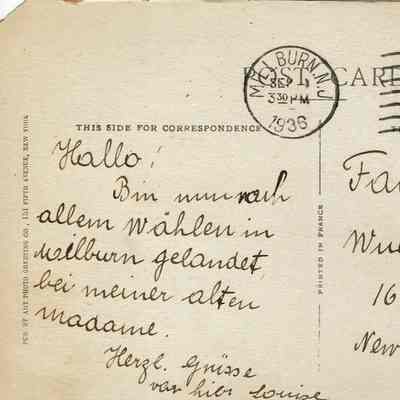 POST CARD
MILBURN, N.J.
SEP 1
3 30 PM
1936
THIS SIDE FOR CORRESPONDENCE
Hallo!
Bin nun nach
allem Wählen in
Milburn gelandet,
bei meiner alten
Madame.
Herzl. Grüsse
von hier Louise
Fa
16
New
PRINTED IN FRANCE
PUB. BY ART PHOTO GREETING CO., 151 FIFTH AVENUE, NEW YORK